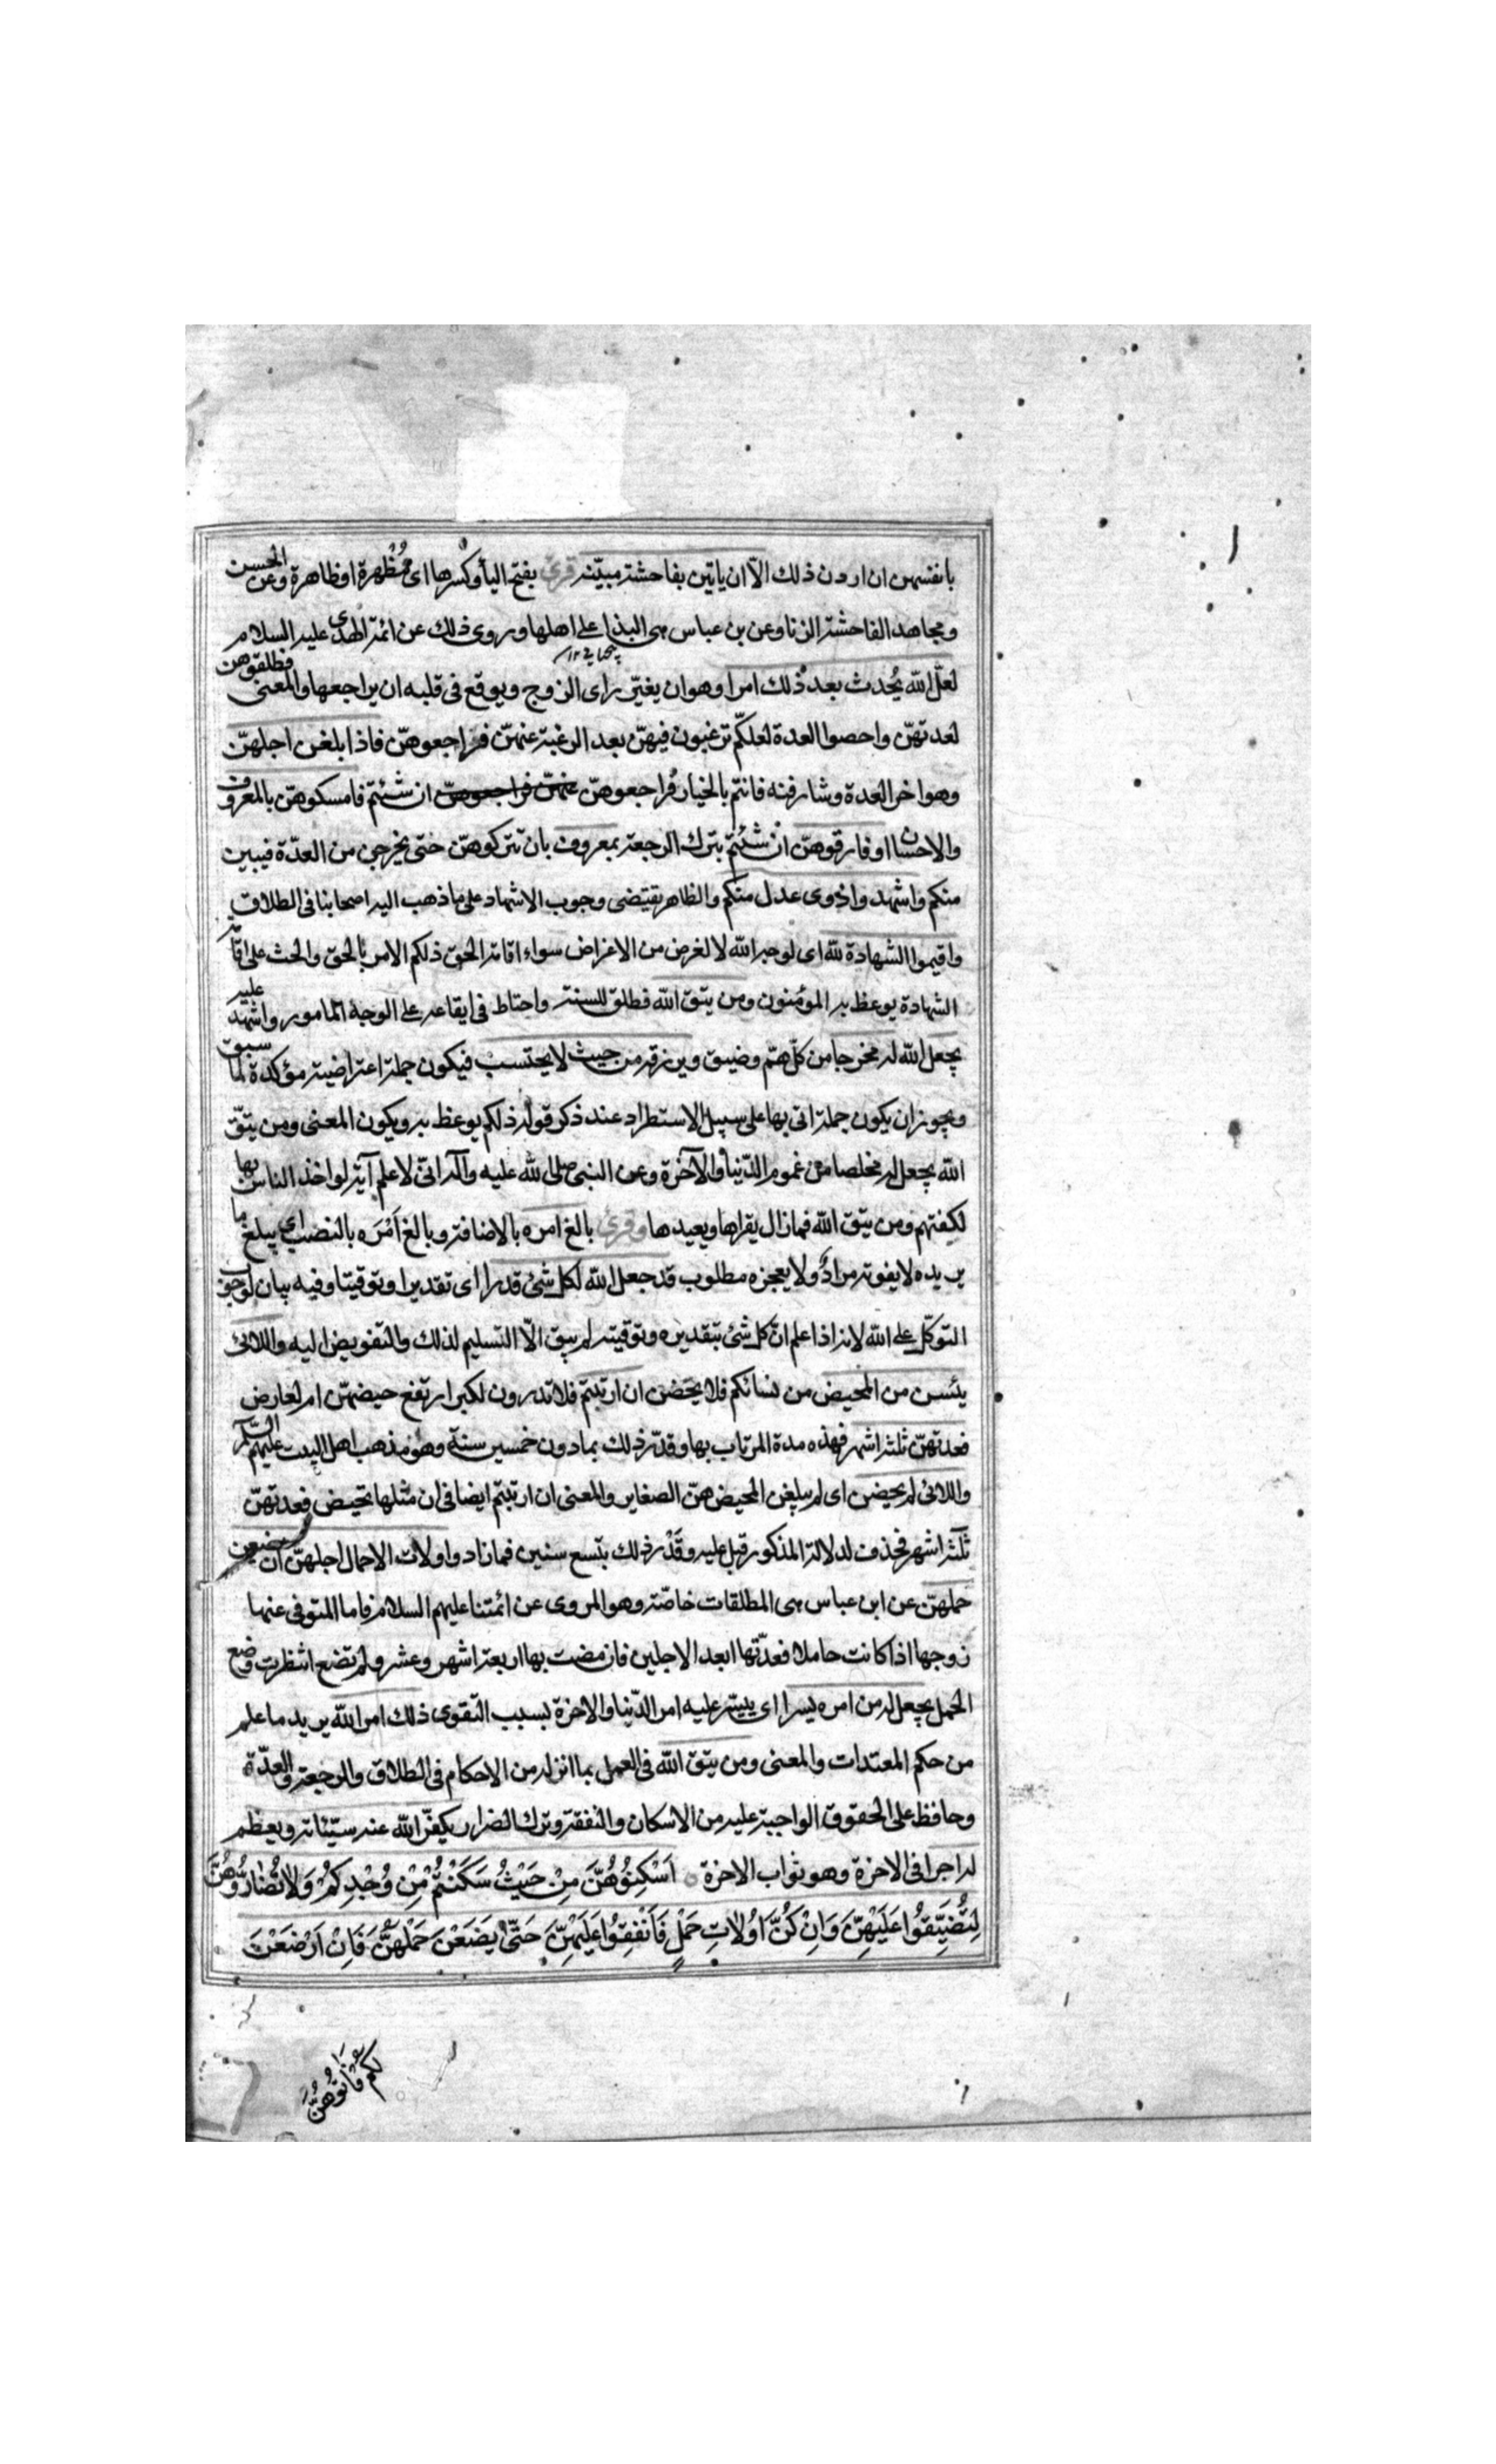 بانفسهن ان اردن ذلك الّا ان ياتين بفاحشة مبيّنة قرئ بفتح الياء وكسرها اى مُظْهرة او ظاهرة وعن الحسن
ومجاهد الفاحشة الزنا وعن بن عباس هى البذا على اهلها وروى ذلك عن ائمة الهدى عليه السلام
لعلّ الله يُحدث بعد ذلك امرا وهو ان يغيّر راى الزوج ويوقع فى قلبه ان يراجعها والمعنى فطلقوهن
لعدتهنّ واحصوا العدة لعلكم ترغبون فيهنّ بعد الرغبة عنهنّ فراجعوهنّ فاذا بلغن اجلهنّ
وهو اخر العدة وشارفنه فانتم بالخيار فراجعوهنّ عنهنّ فراجعوهنّ ان شئتم فامسكوهنّ بالمعروف
والاحسان او فارقوهنّ ان شئتم بترك الرجعة بمعروف بان تتركوهنّ حتى يخرجن من العدّة فيبين
منكم واشهدوا ذوى عدل منكم والظاهر يقتضى وجوب الاشهاد على ما ذهب اليه اصحابنا فى الطلاق
واقيموا الشهادة لله اى لوجه الله لا لغرض من الاغراض سواء اقامة الحق ذلكم الامر بالحق والحث على اقامة
الشهادة يوعظ به المؤمنون ومن يتق الله فطلق للسنة واحتاط فى ايقاعه على الوجه المامور عليه واشهد
يجعل الله له مخرجا من كلّ همّ وضيق ويرزقه من حيث لا يحتسب فيكون جملة اعتراضية مؤكدة لما سبق
ويجوز ان يكون جملة اتى بها على سبيل الاستطراد عند ذكر قوله ذلكم يوعظ به ويكون المعنى ومن يتّق
الله يجعل له مخلصا من غموم الدّنيا والآخرة وعن النبى صلى الله عليه وآله انّى لا علم آية لو اخذ الناس بها
لكفتهم ومن يتق الله فمازال يقراها ويعيدها وقرئ بالغ امره بالاضافة وبالغ اَمْرَه بالنصب اى يبلغ ما
يريده لا يفوته مراد ولا يعجزه مطلوب قد جعل الله لكل شئ قدرا اى تقديرا وتوقيتا وفيه بيان لوجوب
التوكّل على الله لانه اذا علم انّ كل شئ بتقديره وتوقيته لم يبق الّا التسليم لذلك والتفويض اليه واللائى
يئسن من المحيض من نسائكم فلا يحضن ان ارتبتم فلا تدرون لكبر ارتفع حيضهنّ ام لعارض
فعدتهنّ ثلثة اشهر فهذه مدة المرتاب بها وقدّر ذلك بما دون خمسين سنة وهو مذهب اهل البيت عليهم السّلام
واللائى لم يحضن اى لم يبلغن المحيض هنّ الصغاير والمعنى ان ارتبتم ايضا فى ان مثلها تحيض فعدتهنّ
ثلثة اشهر فحذف لدلالة المذكور قبل عليه وقدّر ذلك بتسع سنين فمازاد واولات الاحمال اجلهنّ ان يضعن
حملهنّ عن ابن عباس هى المطلقات خاصّة وهو المروى عن ائمتنا عليهم السلام فاما المتوفى عنها
زوجها اذا كانت حاملا فعدّتها ابعد الاجلين فان مضت بها اربعة اشهر وعشر ولم تضع انتظرت وضع
الحمل يجعل له من امره يسرا اى ييسّر عليه امر الدّنيا والاخرة بسبب التقوى ذلك امر الله يريد ما علم
من حكم المعتدات والمعنى ومن يتق الله فى العمل بما انزله من الاحكام فى الطلاق والرجعة والعدّة
وحافظ على الحقوق الواجبة عليه من الاسكان والنفقة وترك الضرار يكفّر الله عنه سيّئاته ويعظم
له اجرا فى الاخرة وهو ثواب الاخرة ○ اَسْكِنُوهُنَّ مِنْ حَيْثُ سَكَنْتُمْ مِنْ وُجْدِكُمْ وَلَا تُضَارُّوهُنَّ
لِتُضَيِّقُوا عَلَيْهِنَّ وَاِنْ كُنَّ اُولَاتِ حَمْلٍ فَاَنْفِقُوا عَلَيْهِنَّ حَتّٰى يَضَعْنَ حَمْلَهُنَّ فَاِنْ اَرْضَعْنَ
لكم فَاٰتُوهُنَّ